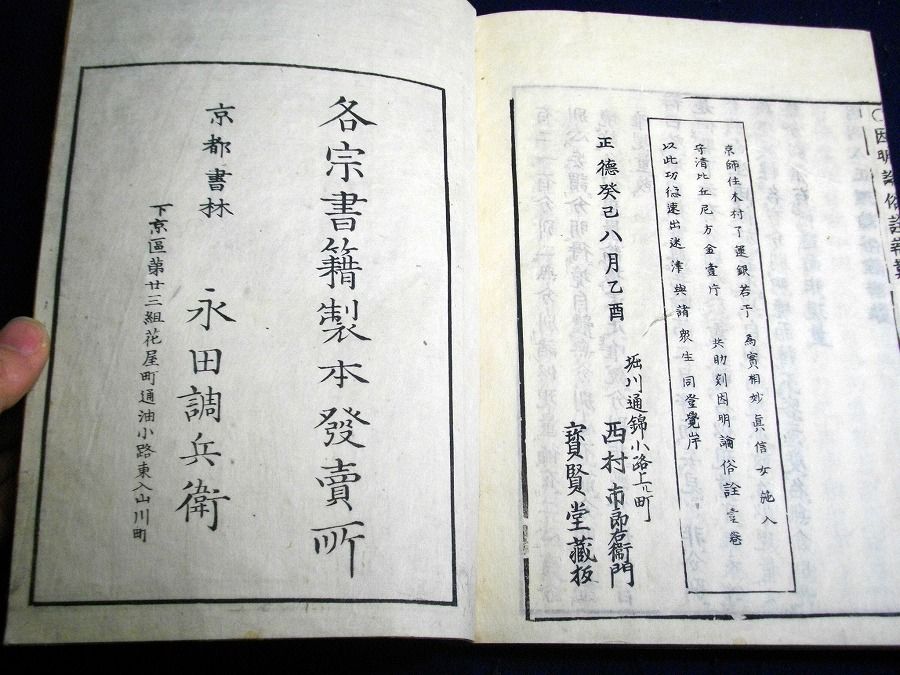 因明論俗詮卷
京師住木村了蓮銀若干 爲實相妙眞信女施入
守清比丘尼方金壹片 共助刻因明論俗詮壹卷
以此功德速出迷津與諸衆生同登覺岸
正德癸巳八月乙酉
堀川通錦小路上ル町
西村市郎右衛門
寶賢堂藏板
各宗書籍製本發賣所
京都書林 永田調兵衛
下京區第廿三組花屋町通油小路東入山川町